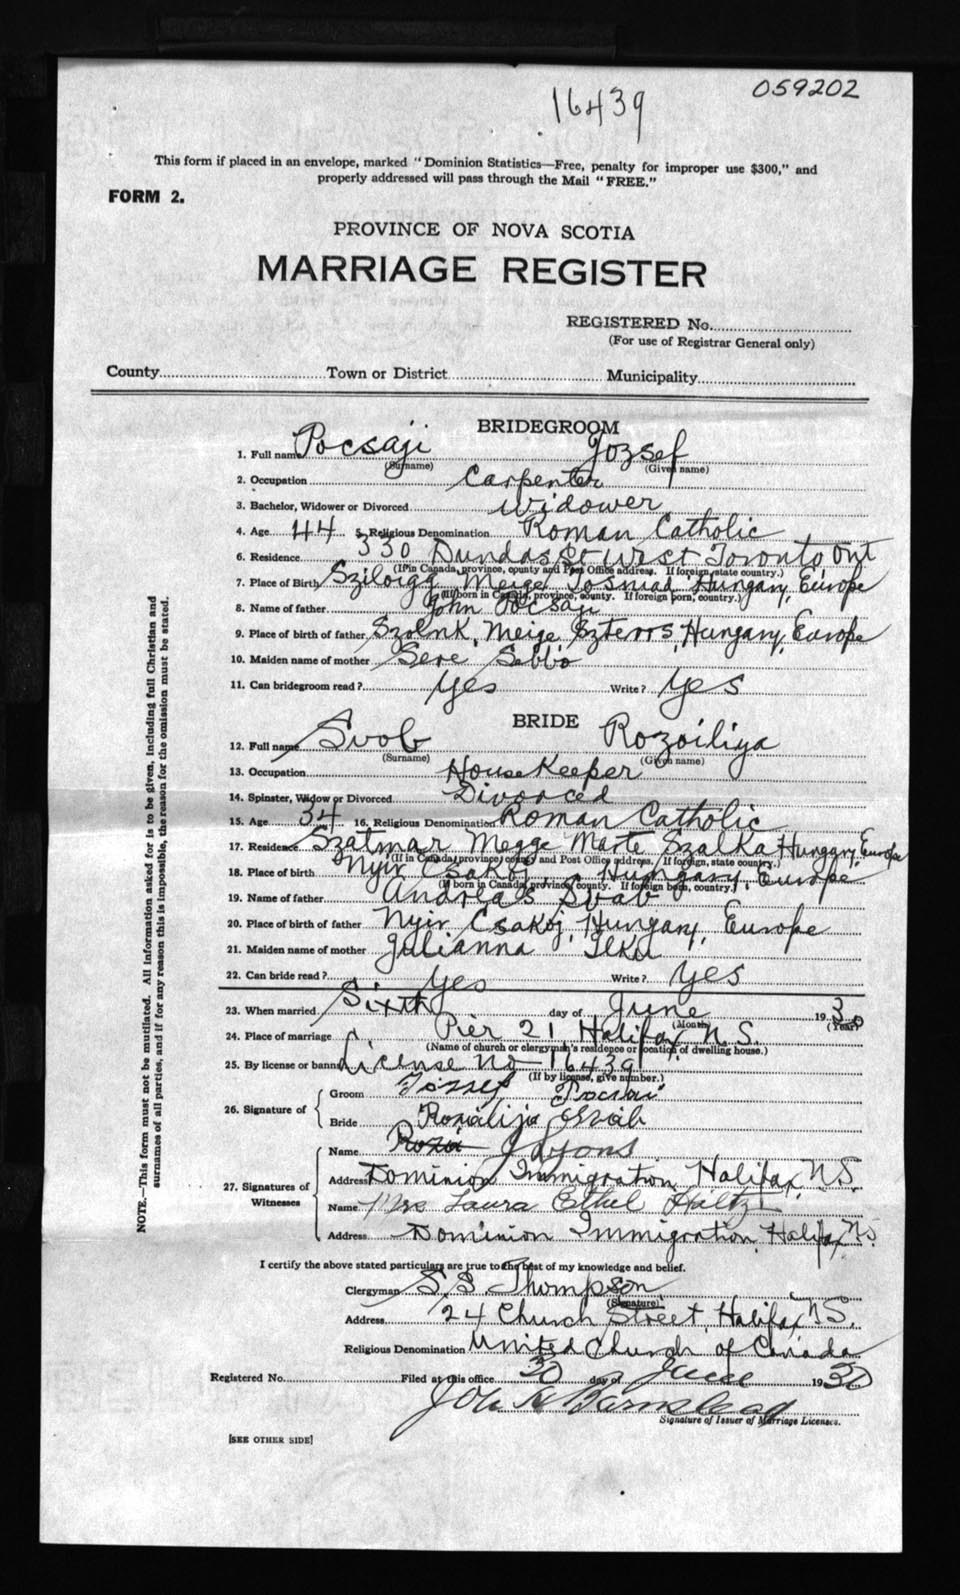 059202
16439
This form if placed in an envelope, marked "Dominion Statistics—Free, penalty for improper use $300," and
properly addressed will pass through the Mail "FREE."
FORM 2.
PROVINCE OF NOVA SCOTIA
MARRIAGE REGISTER
REGISTERED No.
(For use of Registrar General only)
County Town or District Municipality
BRIDEGROOM
1. Full name Pocsaji Jozsef
(Surname) (Given name)
2. Occupation Carpenter
3. Bachelor, Widower or Divorced Widower
4. Age 44 5. Religious Denomination Roman Catholic
6. Residence 330 Dundas St West Toronto Ont
(If in Canada, province, county and Post Office address. If foreign, state country.)
7. Place of Birth Meige Hungary, Europe
(If born in Canada, province, county. If foreign born, country.)
8. Name of father John Pocsaji
9. Place of birth of father Szolnk, Meige Hungary, Europe
10. Maiden name of mother Sere Sebbo
11. Can bridegroom read? Yes Write? Yes
BRIDE
12. Full name Svob Rozoiliya
(Surname) (Given name)
13. Occupation House Keeper
14. Spinster, Widow or Divorced Divorced
15. Age 34 16. Religious Denomination Roman Catholic
17. Residence Szatmar Megge Marte Szalka Hunggry, Europe
(If in Canada, province, county and Post Office address. If foreign, state country.)
18. Place of birth Nyir Csakoj, Hungary, Europe
(If born in Canada, province, county. If foreign born, country.)
19. Name of father Andreas Svab
20. Place of birth of father Nyir Csakoj, Hungary, Europe
21. Maiden name of mother Julianna Ilku
22. Can bride read? Yes Write? Yes
23. When married Sixth day of June 1930
(Month) (Year)
24. Place of marriage Pier 21 Halifax N.S.
(Name of church or clergyman's residence or location of dwelling house.)
25. By license or banns License No 16439
(If by license, give number.)
26. Signature of Groom Jozsef
Bride Rozalija Szvab
27. Signatures of Witnesses Name J Lyons
Address Dominion Immigration, Halifax, N.S.
Name Mrs Laura Ethel Holtz
Address Dominion Immigration, Halifax N.S.
I certify the above stated particulars are true to the best of my knowledge and belief.
Clergyman S.B. Thompson
(Signature)
Address 24 Church Street, Halifax N.S.
Religious Denomination United Church of Canada
Registered No. Filed at this office 30 day of June 1930
Signature of Issuer of Marriage Licenses.
[SEE OTHER SIDE]
NOTE.—This form must not be mutilated. All information asked for is to be given, including full Christian and
surnames of all parties, and if for any reason this is impossible, the reason for the omission must be stated.